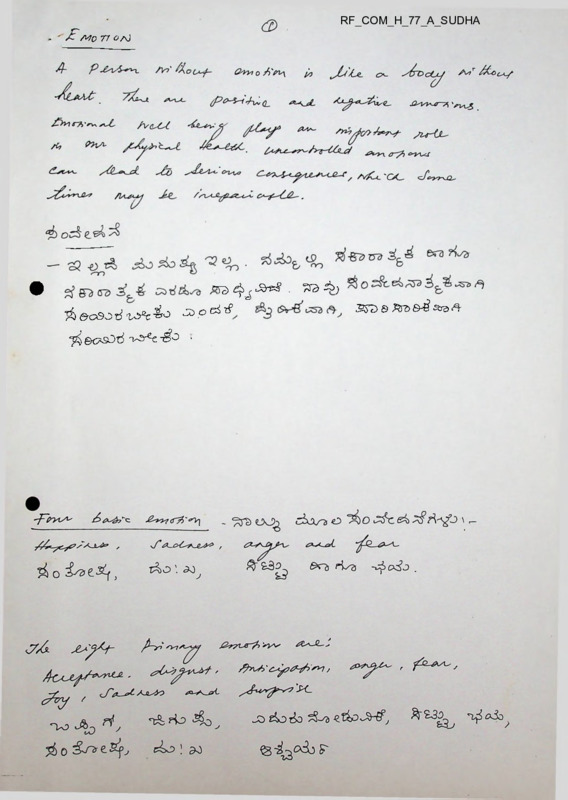 RF_COM_H_77_A_SUDHA
①
- EMOTION
A person without emotion is like a body without
heart. There are positive and negative emotions.
Emotional well being plays an important role
in our physical health. uncontrolled emotions
can lead to serious consequences, which some
times may be irrepairable.
ಸಂವೇದನೆ
- ಇಲ್ಲದೆ ಮನುಷ್ಯ ಇಲ್ಲ. ನಮ್ಮಲ್ಲಿ ಸಕಾರಾತ್ಮಕ ಹಾಗೂ
ನಕಾರಾತ್ಮಕ ಎರಡೂ ಸಾಧ್ಯವಿದೆ. ನಾವು ಸಂವೇದನಾತ್ಮಕವಾಗಿ
ಸರಿಯಿರಬೇಕು ಎಂದರೆ, ದೈಹಿಕವಾಗಿ, ಪಾರಿಸಾರಿಕವಾಗಿ
ಸರಿಯಿರಬೇಕು :
Four basic emotion - ನಾಲ್ಕು ಮೂಲ ಸಂವೇದನೆಗಳು:-
Happiness, Sadness, anger and fear
ಸಂತೋಷ, ದುಃಖ, ಸಿಟ್ಟು ಹಾಗೂ ಭಯ.
The eight Primary emotion are:
Acceptance. disgust. Anticipation, anger, fear,
Joy, Sadness and Surprise
ಒಪ್ಪಿಗೆ, ಜಿಗುಪ್ಸೆ, ಎದುರುನೋಡುವಿಕೆ, ಸಿಟ್ಟು, ಭಯ,
ಸಂತೋಷ, ದುಃಖ ಆಶ್ಚರ್ಯ